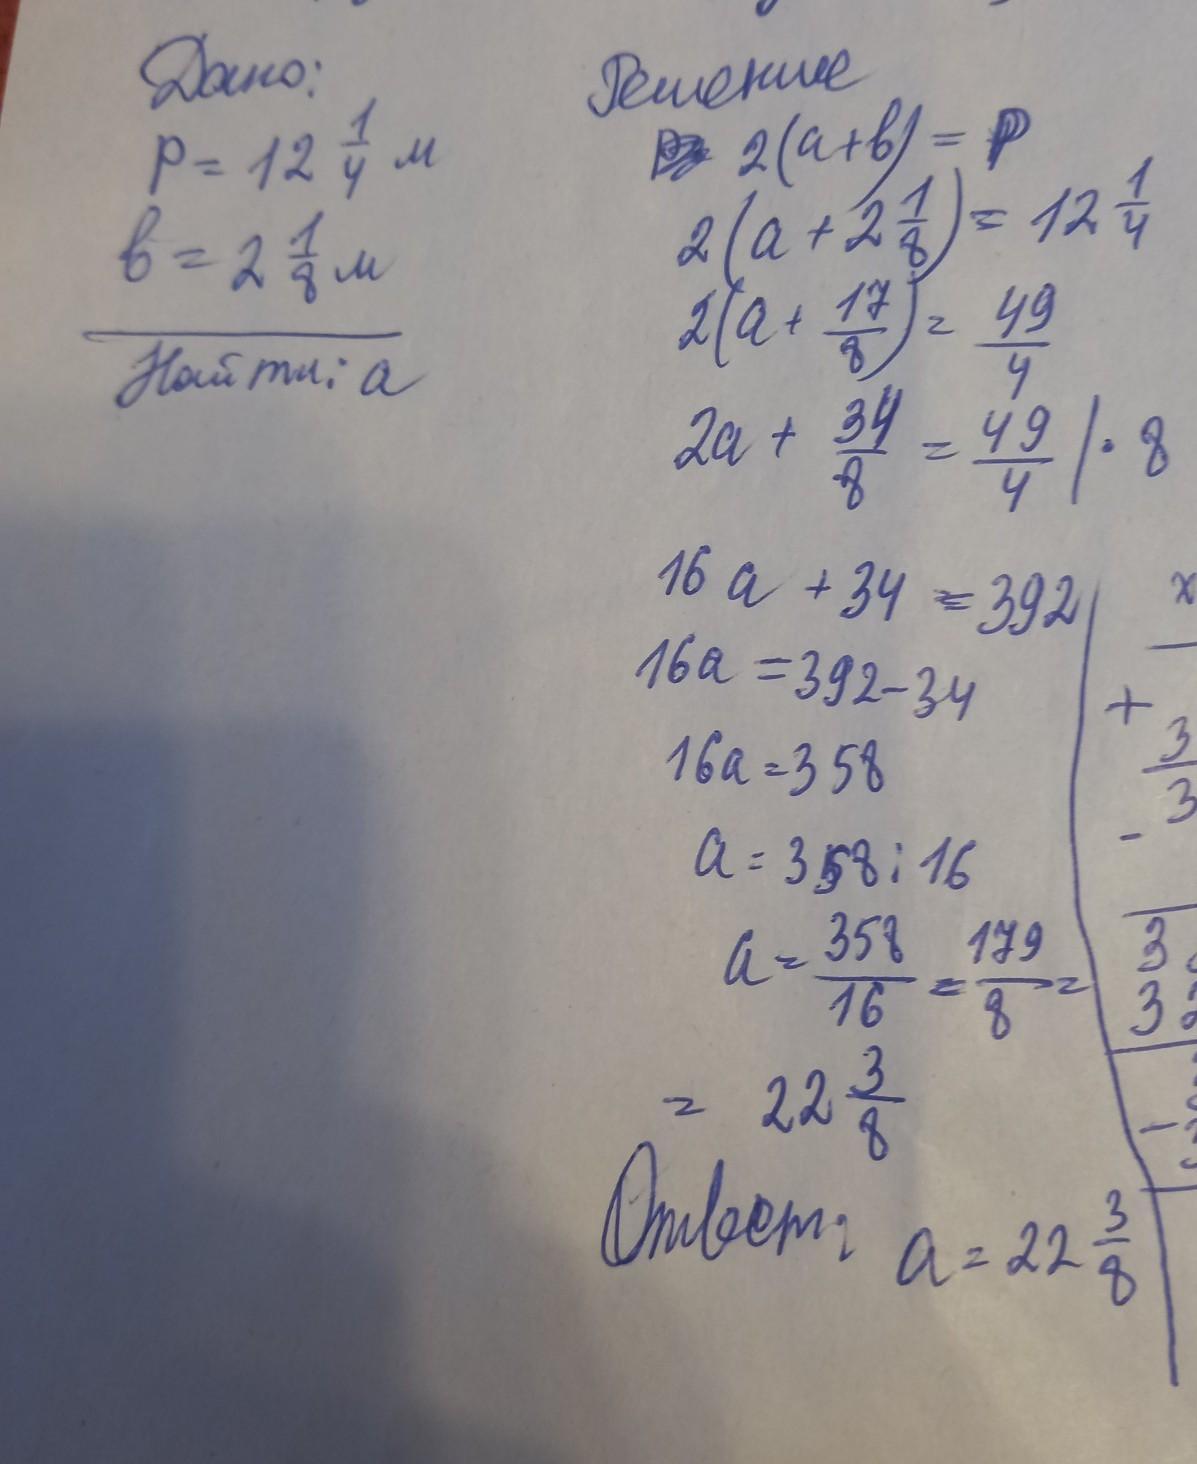 Дано:
P = 12 1/4 м
в = 2 1/8 м
Найти: a
Решение
2(a+в) = P
2(a + 2 1/8) = 12 1/4
2(a + 17/8) = 49/4
2a + 34/8 = 49/4 | · 8
16a + 34 = 392
16a = 392 - 34
16a = 358
a = 358 : 16
a = 358/16 = 179/8 =
= 22 3/8
Ответ: a = 22 3/8
x
+
3
3
-
3
32
-